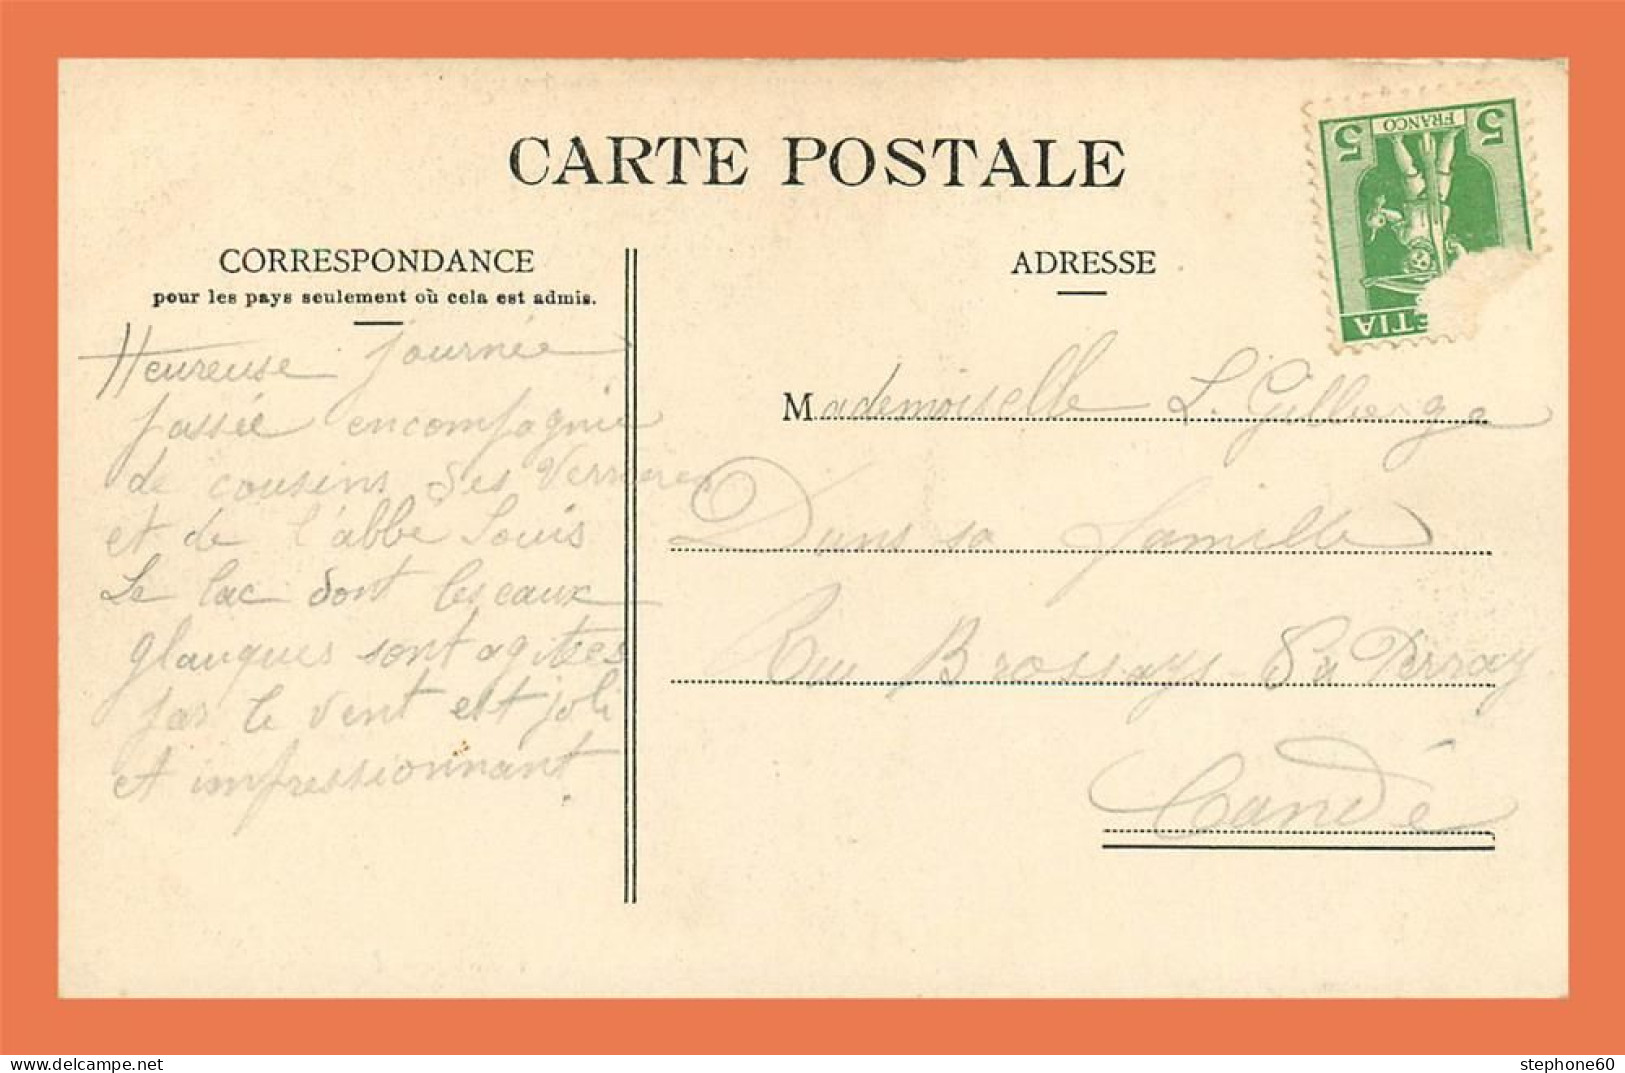 CARTE POSTALE
5 FRANCO 5
ETIA
CORRESPONDANCE
pour les pays seulement où cela est admis.
Heureuse journée
passée en compagnie
de cousins des Verrières
et de l'abbé Louis
Le lac dont les eaux
glauques sont agitées
par le vent est joli
et impressionnant.
ADRESSE
Mademoiselle L. Gilberge
Dans sa famille
Rue Brossays Du Perray
Candé
stephone60